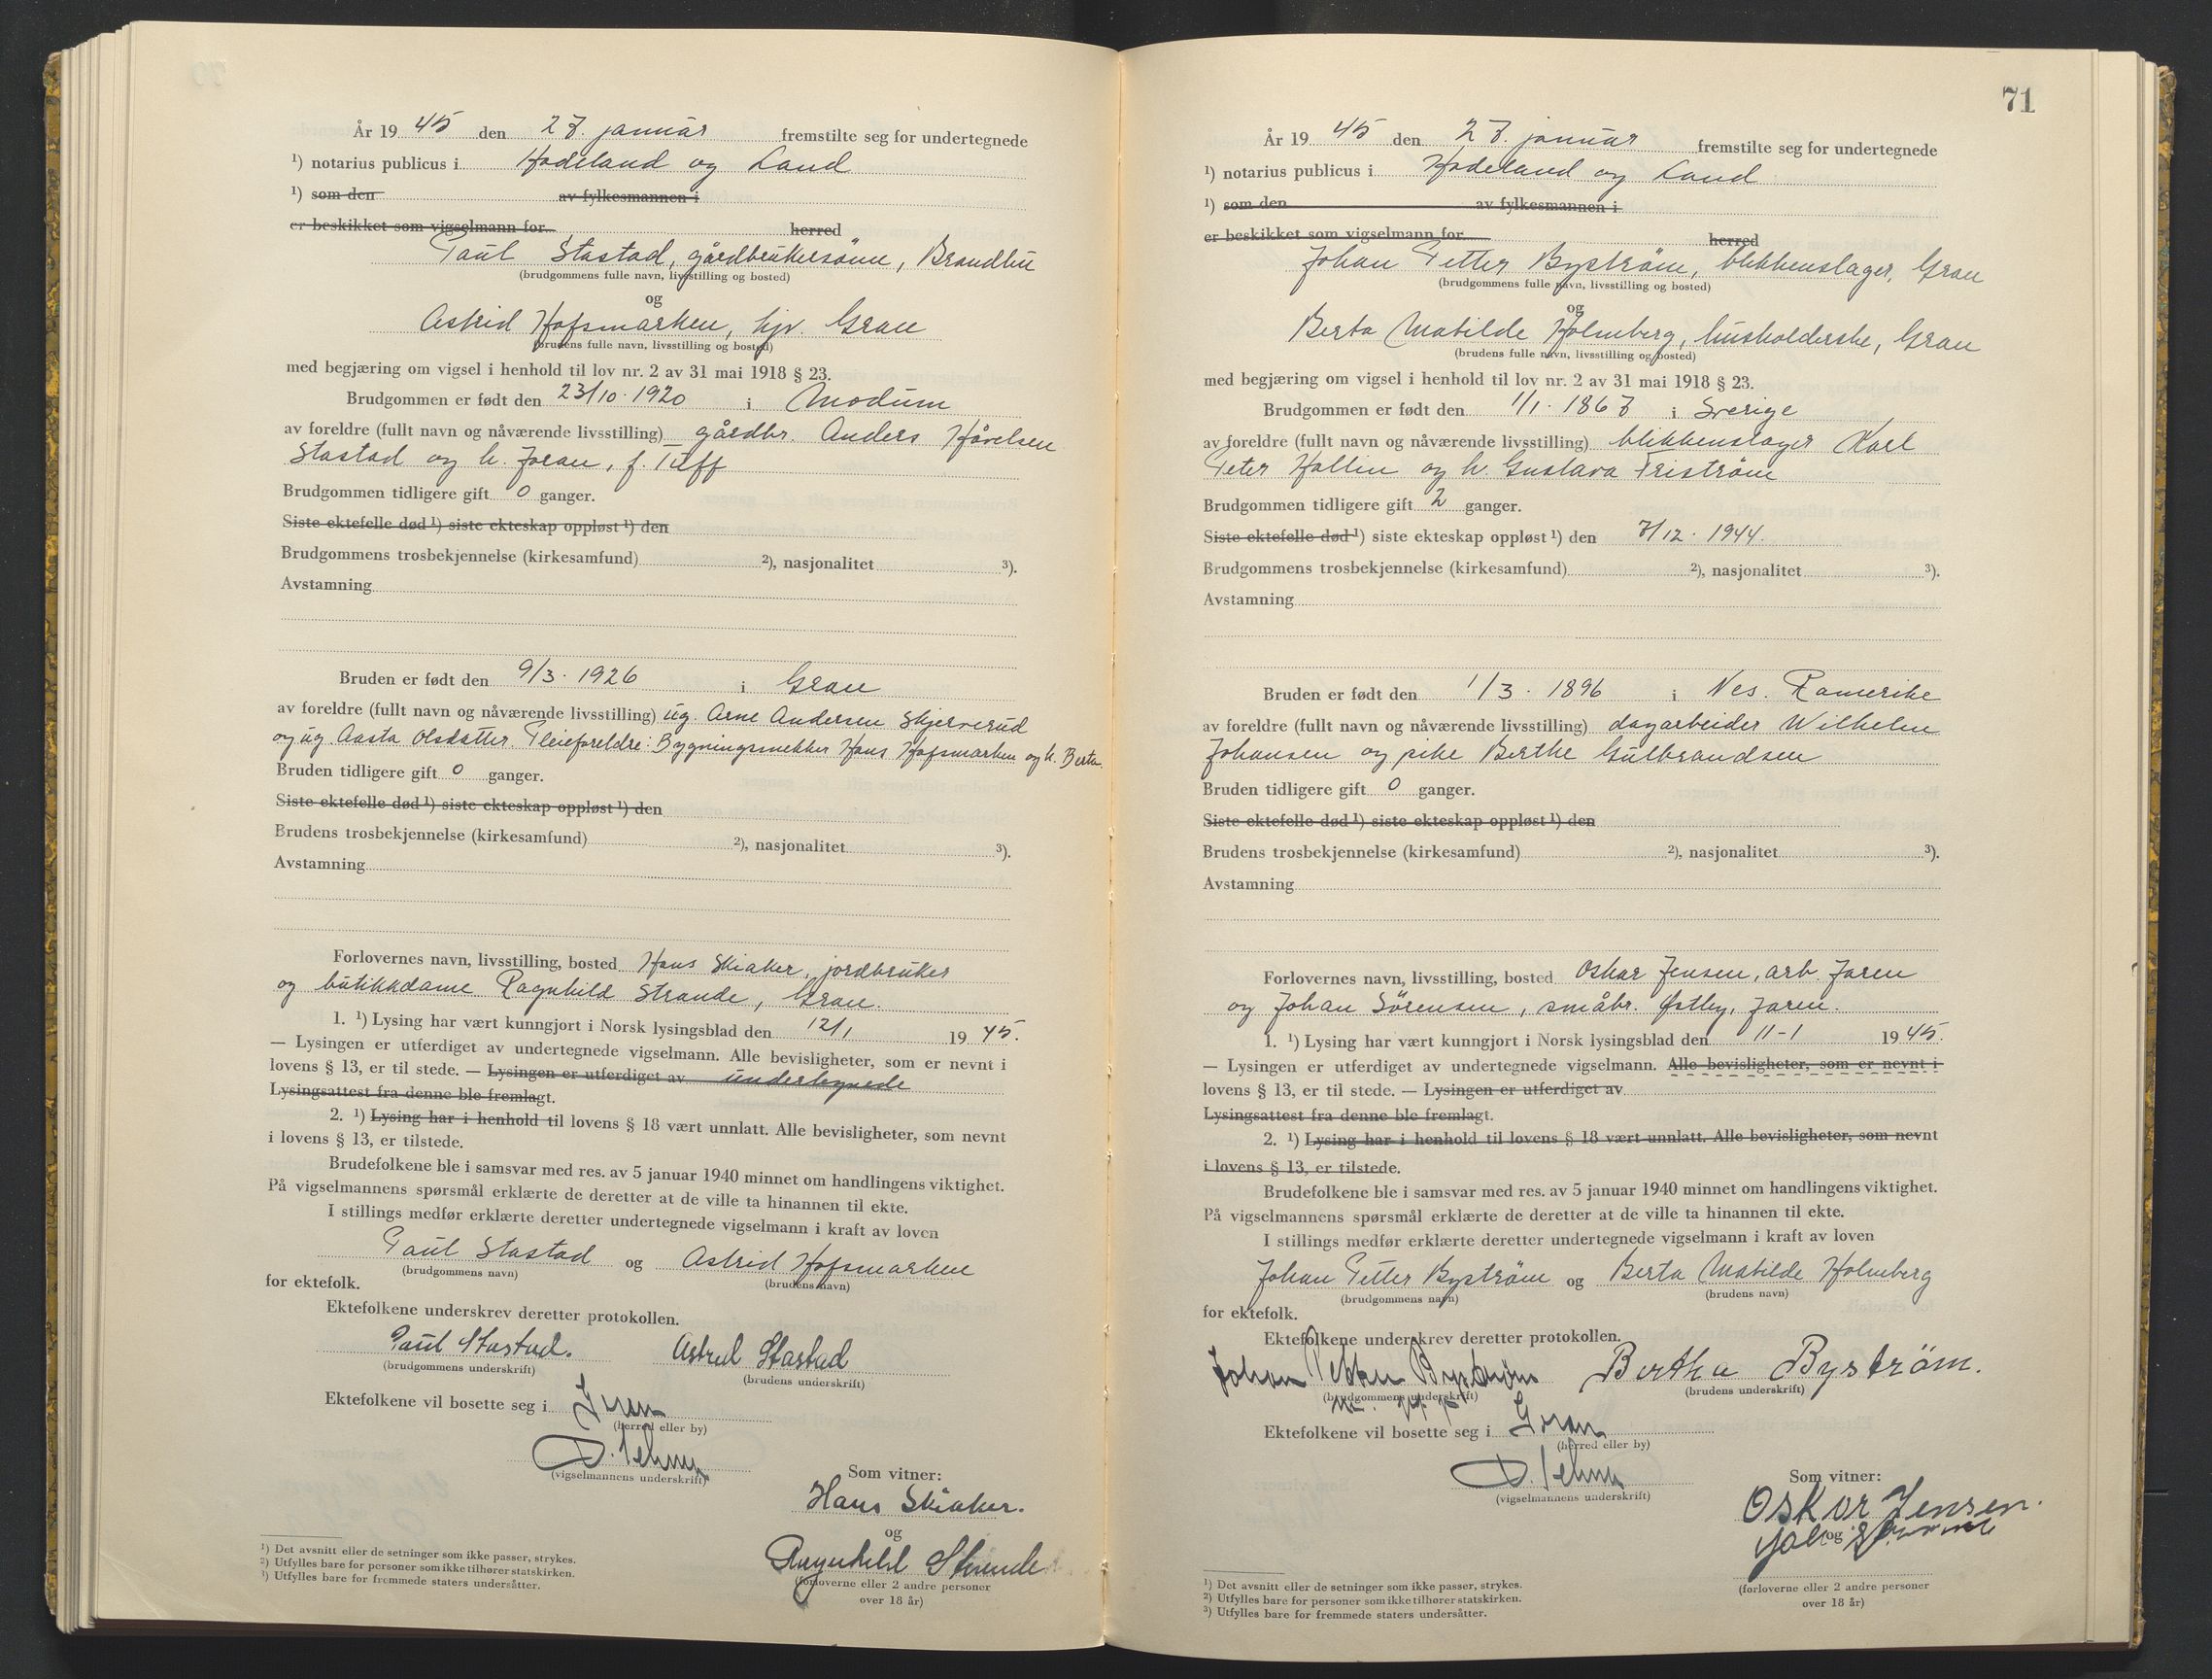 År 19 45 den 27. januar fremstilte seg for undertegnede
¹) notarius publicus i Hadeland og Land
¹) som den av fylkesmannen i
er beskikket som vigselmann for herred
Paul Stastad, gårdbrukersønn, Brandbu
(brudgommens fulle navn, livsstilling og bosted)
og
Astrid Hofsmarken, hjv. Gran
(brudens fulle navn, livsstilling og bosted)
med begjæring om vigsel i henhold til lov nr. 2 av 31 mai 1918 § 23.
Brudgommen er født den 23/10. 1920 i Modum
av foreldre (fullt navn og nåværende livsstilling) gårdbr. Anders Hårelsen
Stastad og h. Joran, f. Tuff
Brudgommen tidligere gift 0 ganger.
Siste ektefelle død ¹) siste ekteskap oppløst ¹) den
Brudgommens trosbekjennelse (kirkesamfund) ²), nasjonalitet ³).
Avstamning
Bruden er født den 9/3. 1926 i Gran
av foreldre (fullt navn og nåværende livsstilling) ug. Arne Andersen Skjerverud
og ug. Aasta Olsdatter. Pleieforeldre: Bygningssnekker Hans Hofsmarken og h. Berta.
Bruden tidligere gift 0 ganger.
Siste ektefelle død ¹) siste ekteskap oppløst ¹) den
Brudens trosbekjennelse (kirkesamfund) ²), nasjonalitet ³).
Avstamning
Forlovernes navn, livsstilling, bosted Hans Skiaker, jordbruker
og butikkdame Ragnhild Strande, Gran.
1. ¹) Lysing har vært kunngjort i Norsk lysingsblad den 12/1 19 45.
— Lysingen er utferdiget av undertegnede vigselmann. Alle bevisligheter, som er nevnt i
lovens § 13, er til stede. — Lysingen er utferdiget av undertegnede
Lysingsattest fra denne ble fremlagt.
2. ¹) Lysing har i henhold til lovens § 18 vært unnlatt. Alle bevisligheter, som nevnt
i lovens § 13, er tilstede.
Brudefolkene ble i samsvar med res. av 5 januar 1940 minnet om handlingens viktighet.
På vigselmannens spørsmål erklærte de deretter at de ville ta hinannen til ekte.
I stillings medfør erklærte deretter undertegnede vigselmann i kraft av loven
Paul Stastad og Astrid Hofsmarken
(brudgommens navn) (brudens navn)
for ektefolk.
Ektefolkene underskrev deretter protokollen.
Paul Stastad. Astrid Stastad
(brudgommens underskrift) (brudens underskrift)
Ektefolkene vil bosette seg i Gran
(herred eller by)
(vigselmannens underskrift)
Som vitner:
Hans Skiaker.
og
Ragnhild Strande
(forloverne eller 2 andre personer
over 18 år)
¹) Det avsnitt eller de setninger som ikke passer, strykes.
²) Utfylles bare for personer som ikke tilhører statskirken.
³) Utfylles bare for fremmede staters undersåtter.
71
År 19 45 den 27. januar fremstilte seg for undertegnede
¹) notarius publicus i Hadeland og Land
¹) som den av fylkesmannen i
er beskikket som vigselmann for herred
Johan Petter Byström, blikkenslager, Gran
(brudgommens fulle navn, livsstilling og bosted)
og
Berta Matilde Holmberg, husholderske, Gran
(brudens fulle navn, livsstilling og bosted)
med begjæring om vigsel i henhold til lov nr. 2 av 31 mai 1918 § 23.
Brudgommen er født den 1/1. 1867 i Sverige
av foreldre (fullt navn og nåværende livsstilling) blikkenslager Karl
Peter Hallin og h. Gustava Friström
Brudgommen tidligere gift 2 ganger.
Siste ektefelle død ¹) siste ekteskap oppløst ¹) den 7/12. 1944.
Brudgommens trosbekjennelse (kirkesamfund) ²), nasjonalitet ³).
Avstamning
Bruden er født den 1/3. 1896 i Nes. Romerike
av foreldre (fullt navn og nåværende livsstilling) dagarbeider Wilhelm
Johansen og pike Berthe Gulbrandsen
Bruden tidligere gift 0 ganger.
Siste ektefelle død ¹) siste ekteskap oppløst ¹) den
Brudens trosbekjennelse (kirkesamfund) ²), nasjonalitet ³).
Avstamning
Forlovernes navn, livsstilling, bosted Oskar Jensen, arb. Jaren
og Johan Sörensen, småbr. Østby, Jaren.
1. ¹) Lysing har vært kunngjort i Norsk lysingsblad den 11-1 19 45.
— Lysingen er utferdiget av undertegnede vigselmann. Alle bevisligheter, som er nevnt i
lovens § 13, er til stede. — Lysingen er utferdiget av
Lysingsattest fra denne ble fremlagt.
2. ¹) Lysing har i henhold til lovens § 18 vært unnlatt. Alle bevisligheter, som nevnt
i lovens § 13, er tilstede.
Brudefolkene ble i samsvar med res. av 5 januar 1940 minnet om handlingens viktighet.
På vigselmannens spørsmål erklærte de deretter at de ville ta hinannen til ekte.
I stillings medfør erklærte deretter undertegnede vigselmann i kraft av loven
Johan Petter Byström og Berta Matilde Holmberg
(brudgommens navn) (brudens navn)
for ektefolk.
Ektefolkene underskrev deretter protokollen.
Johan Petter Byström Bertha Byström.
(brudgommens underskrift) (brudens underskrift)
Ektefolkene vil bosette seg i Gran
(herred eller by)
(vigselmannens underskrift)
Som vitner:
Oskar Jensen.
og
(forloverne eller 2 andre personer
over 18 år)
¹) Det avsnitt eller de setninger som ikke passer, strykes.
²) Utfylles bare for personer som ikke tilhører statskirken.
³) Utfylles bare for fremmede staters undersåtter.